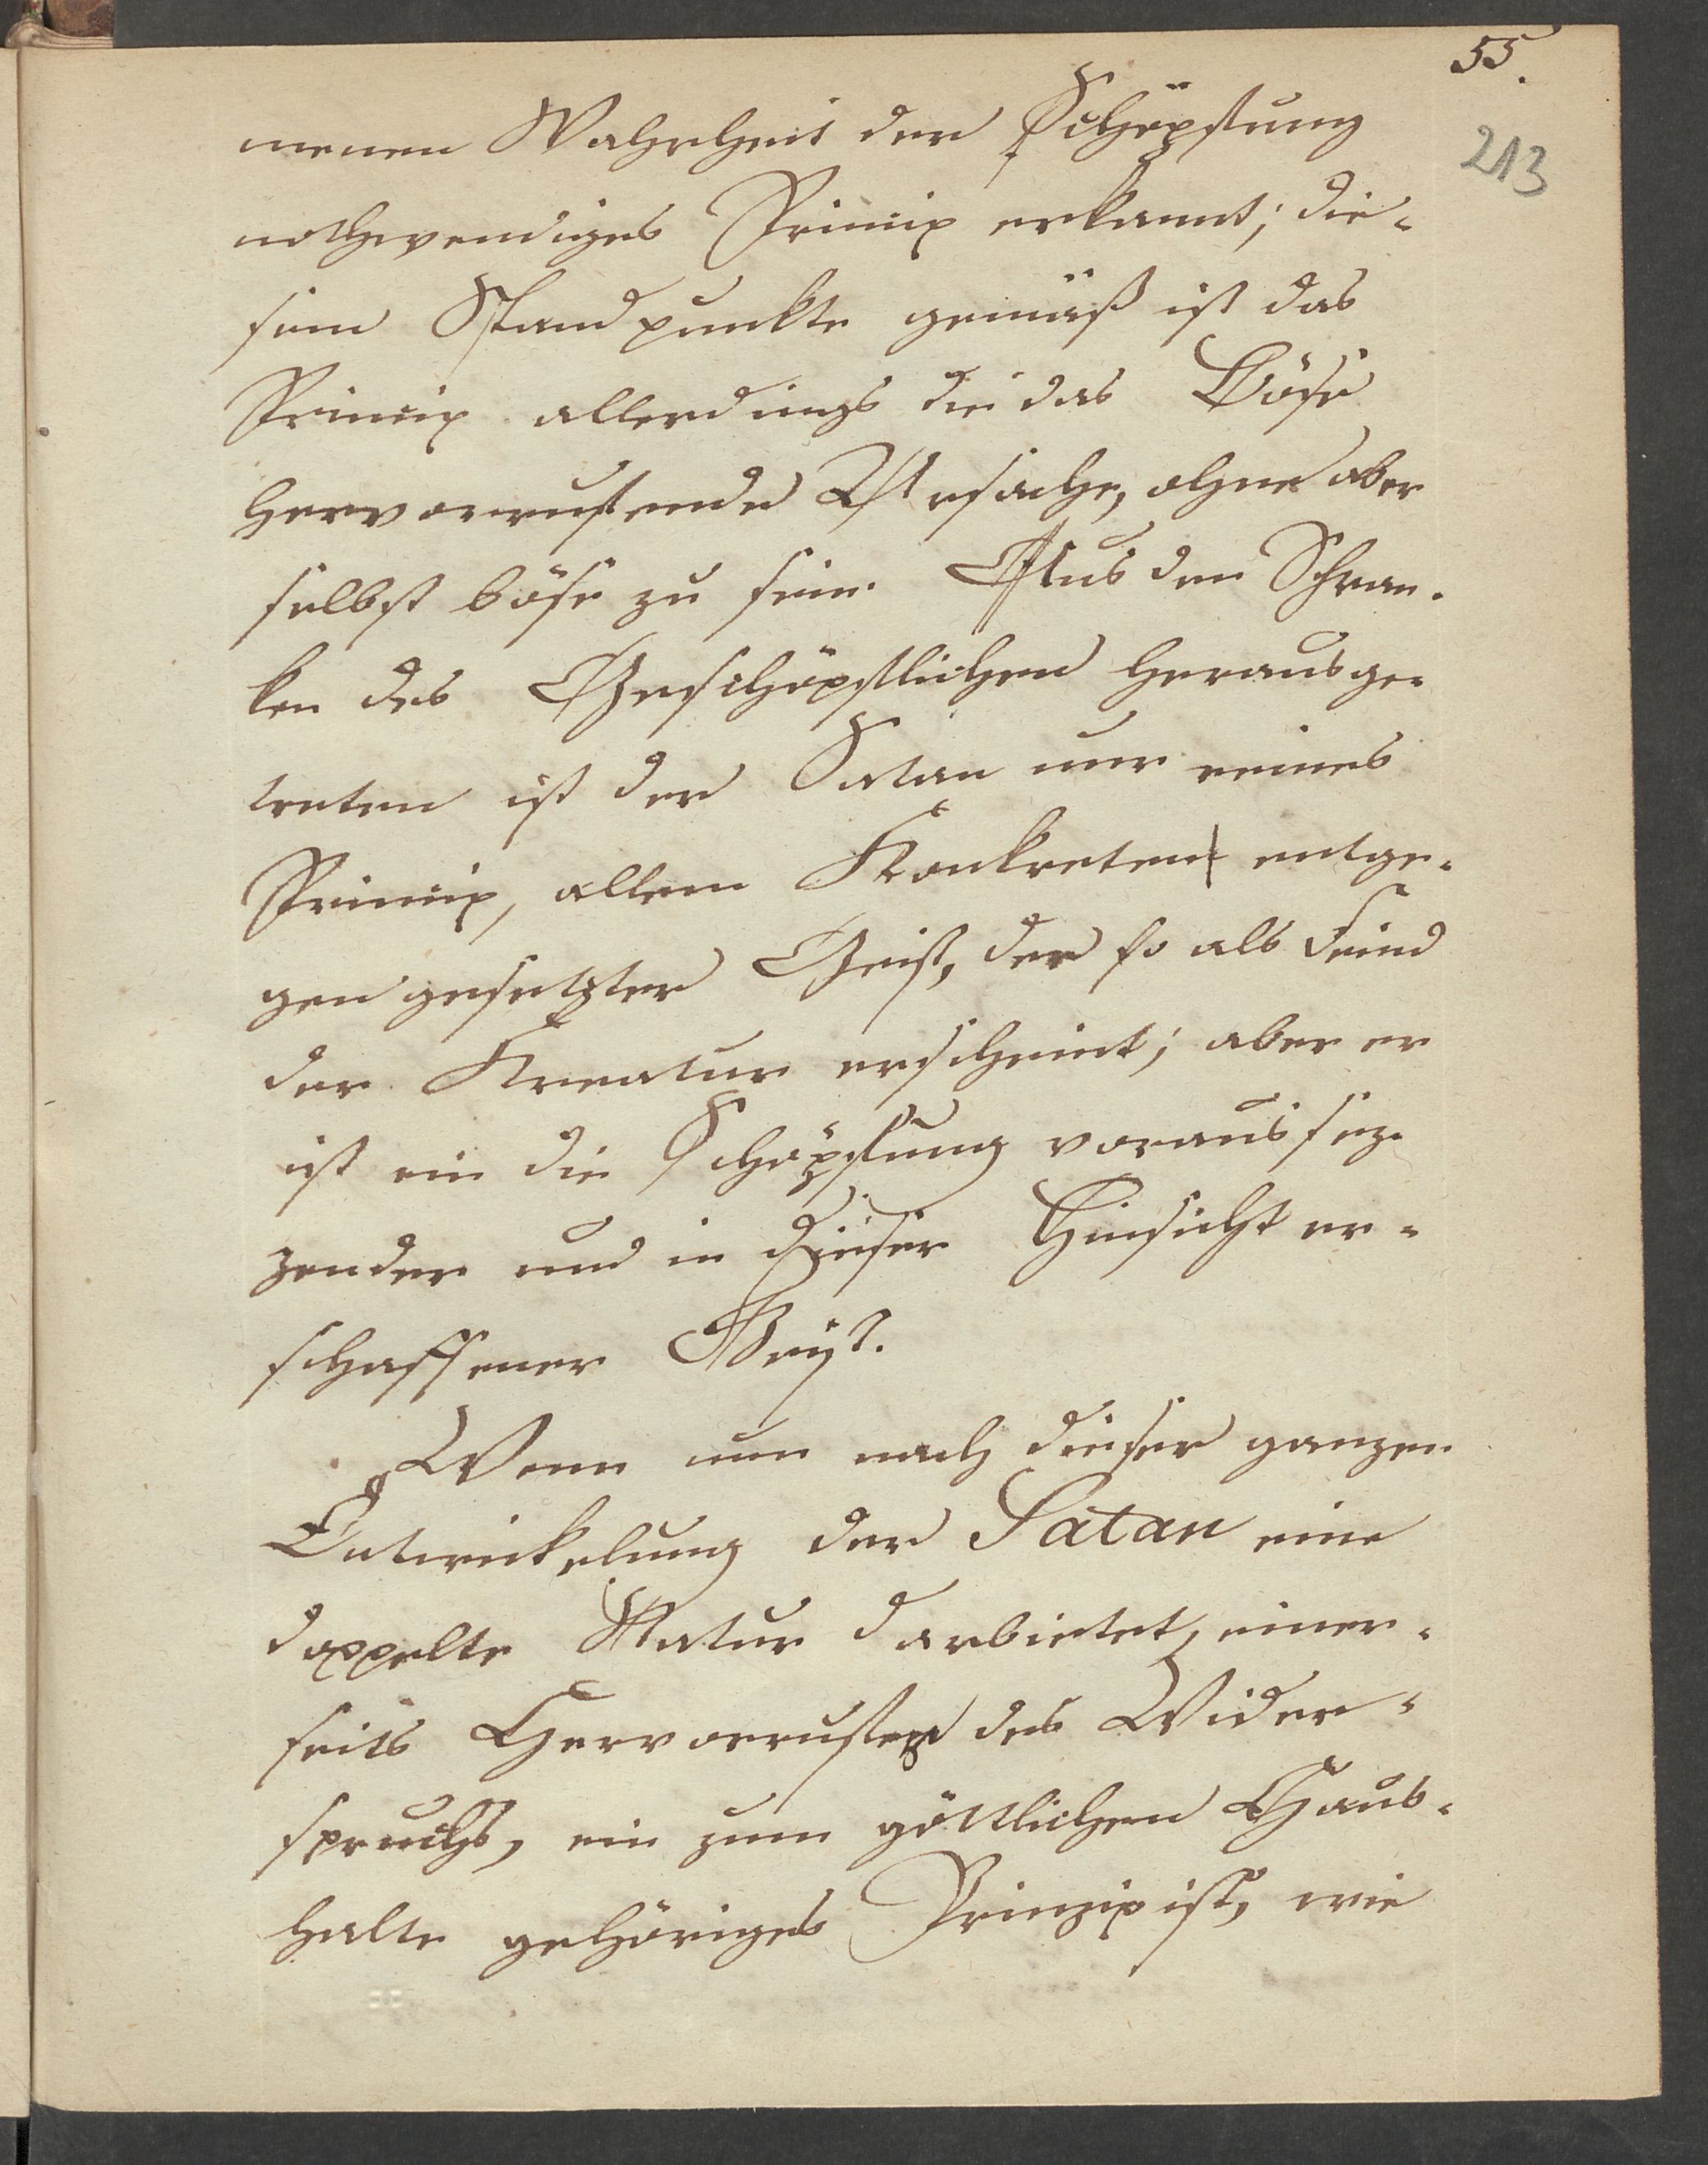 55.
213
nenen Wahrheit der Schöpfung
nothwendiges Princip erkannt; die-
sem Standpunkte gemäß ist das
Princip allerdings die das Böse
hervorrufende Ursache, ohne aber
selbst böse zu sein. Aus den Schran-
ken des Geschöpflichen herausge-
treten ist der Satan nur reines
Princip, allem Konkreten entge-
gengesetzter Geist, der so als Feind
der Kreatur erscheint; aber er
ist ein die Schöpfung voraussez-
zender und in dieser Hinsicht er-
schaffener Geist.
Wenn nun nach dieser ganzen
Entwickelung der Satan eine
doppelte Natur darbietet, einer-
seits Hervorrufer des Wider-
spruchs, ein zum göttlichen Haus-
halte gehöriges Prinzip ist, wie